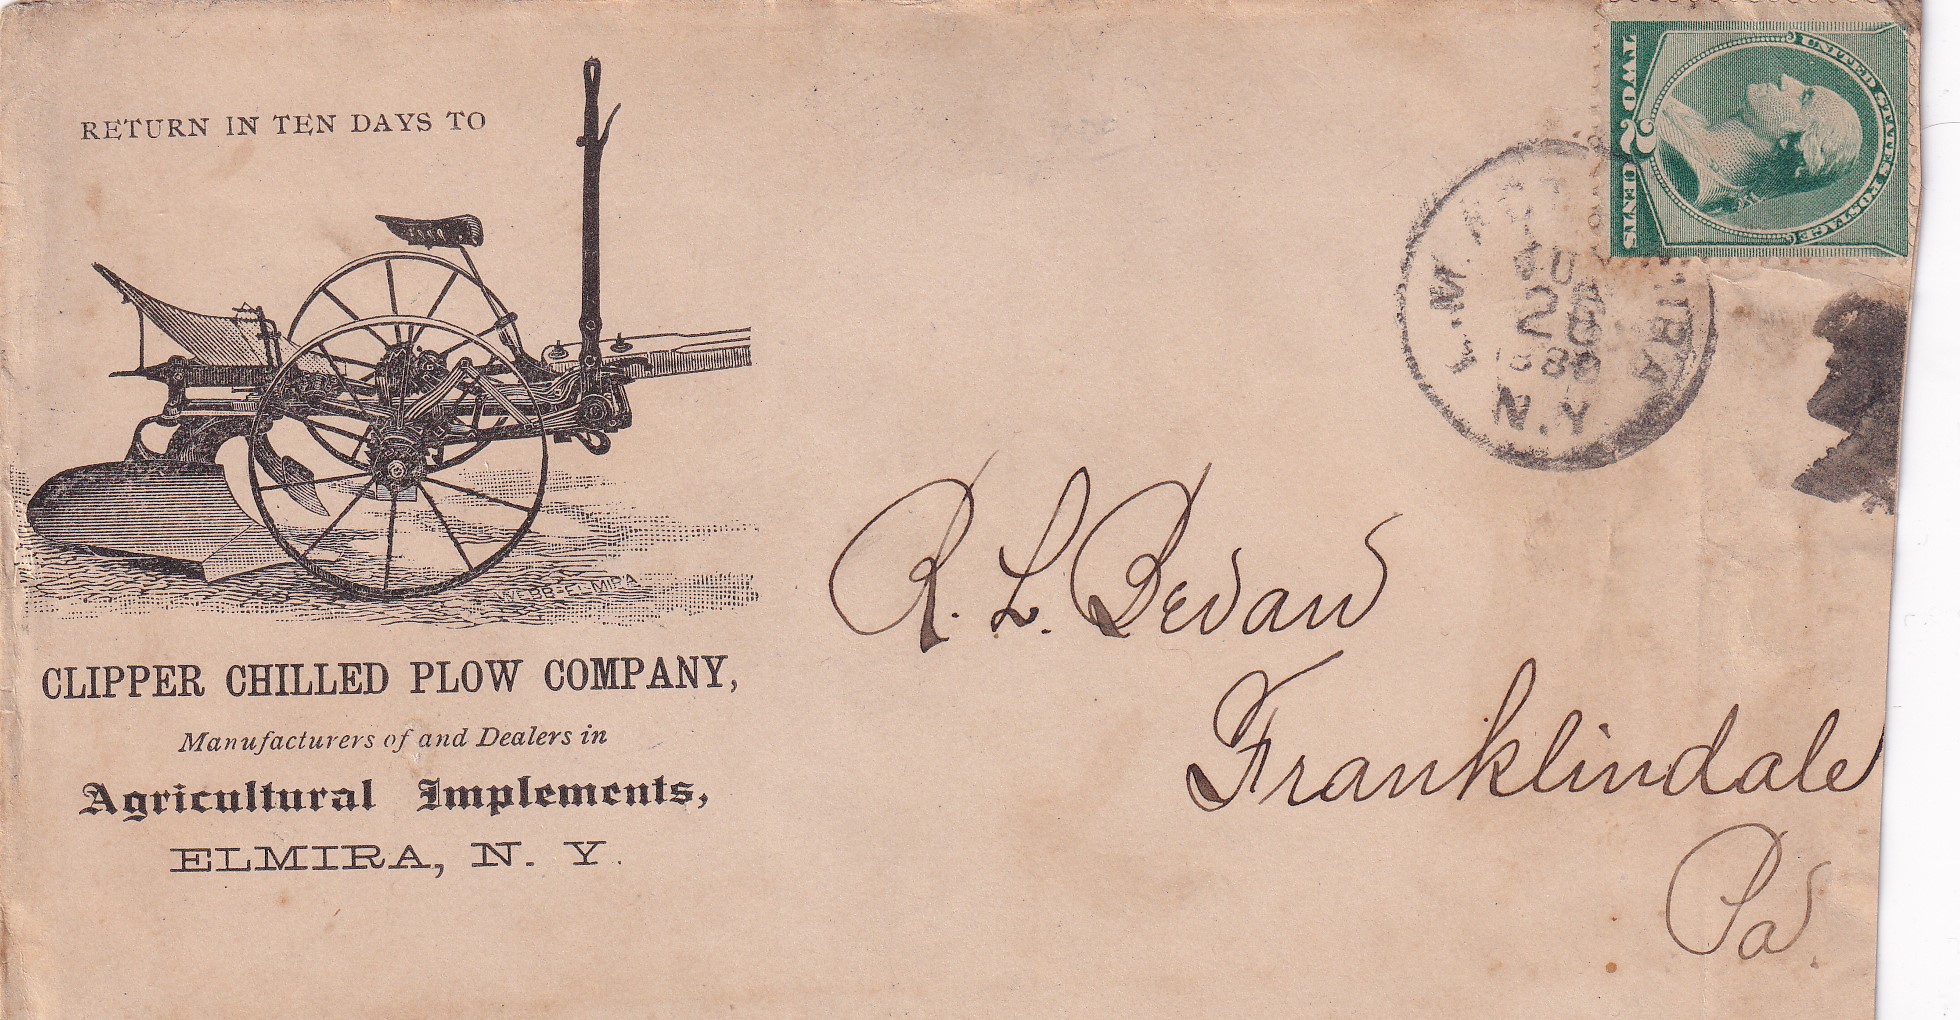 RETURN IN TEN DAYS TO
WEBB-ELMIRA
CLIPPER CHILLED PLOW COMPANY,
Manufacturers of and Dealers in
Agricultural Implements,
ELMIRA, N. Y.
UNITED STATES POSTAGE
TWO 2 CENTS
N.Y
R. L. Bevan
Franklindale
Pa.